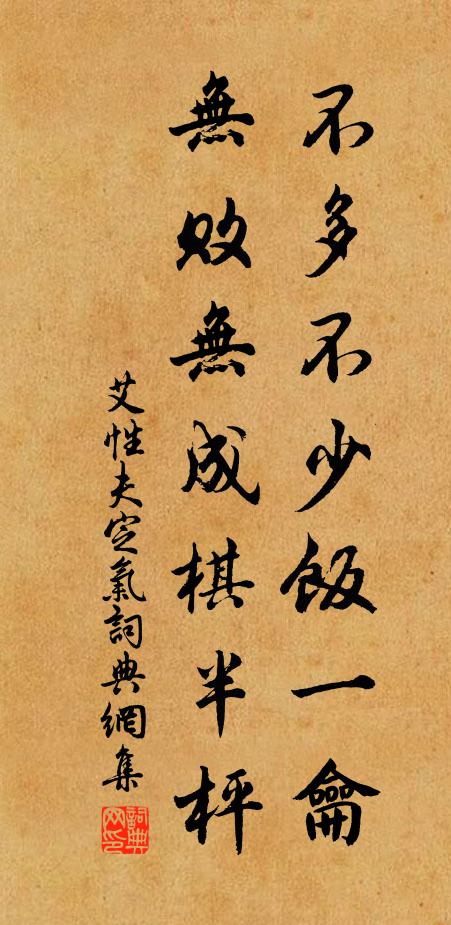 不多不少飯一龠
無敗無成棋半枰
艾性夫定氣詞典網集
詞典网印